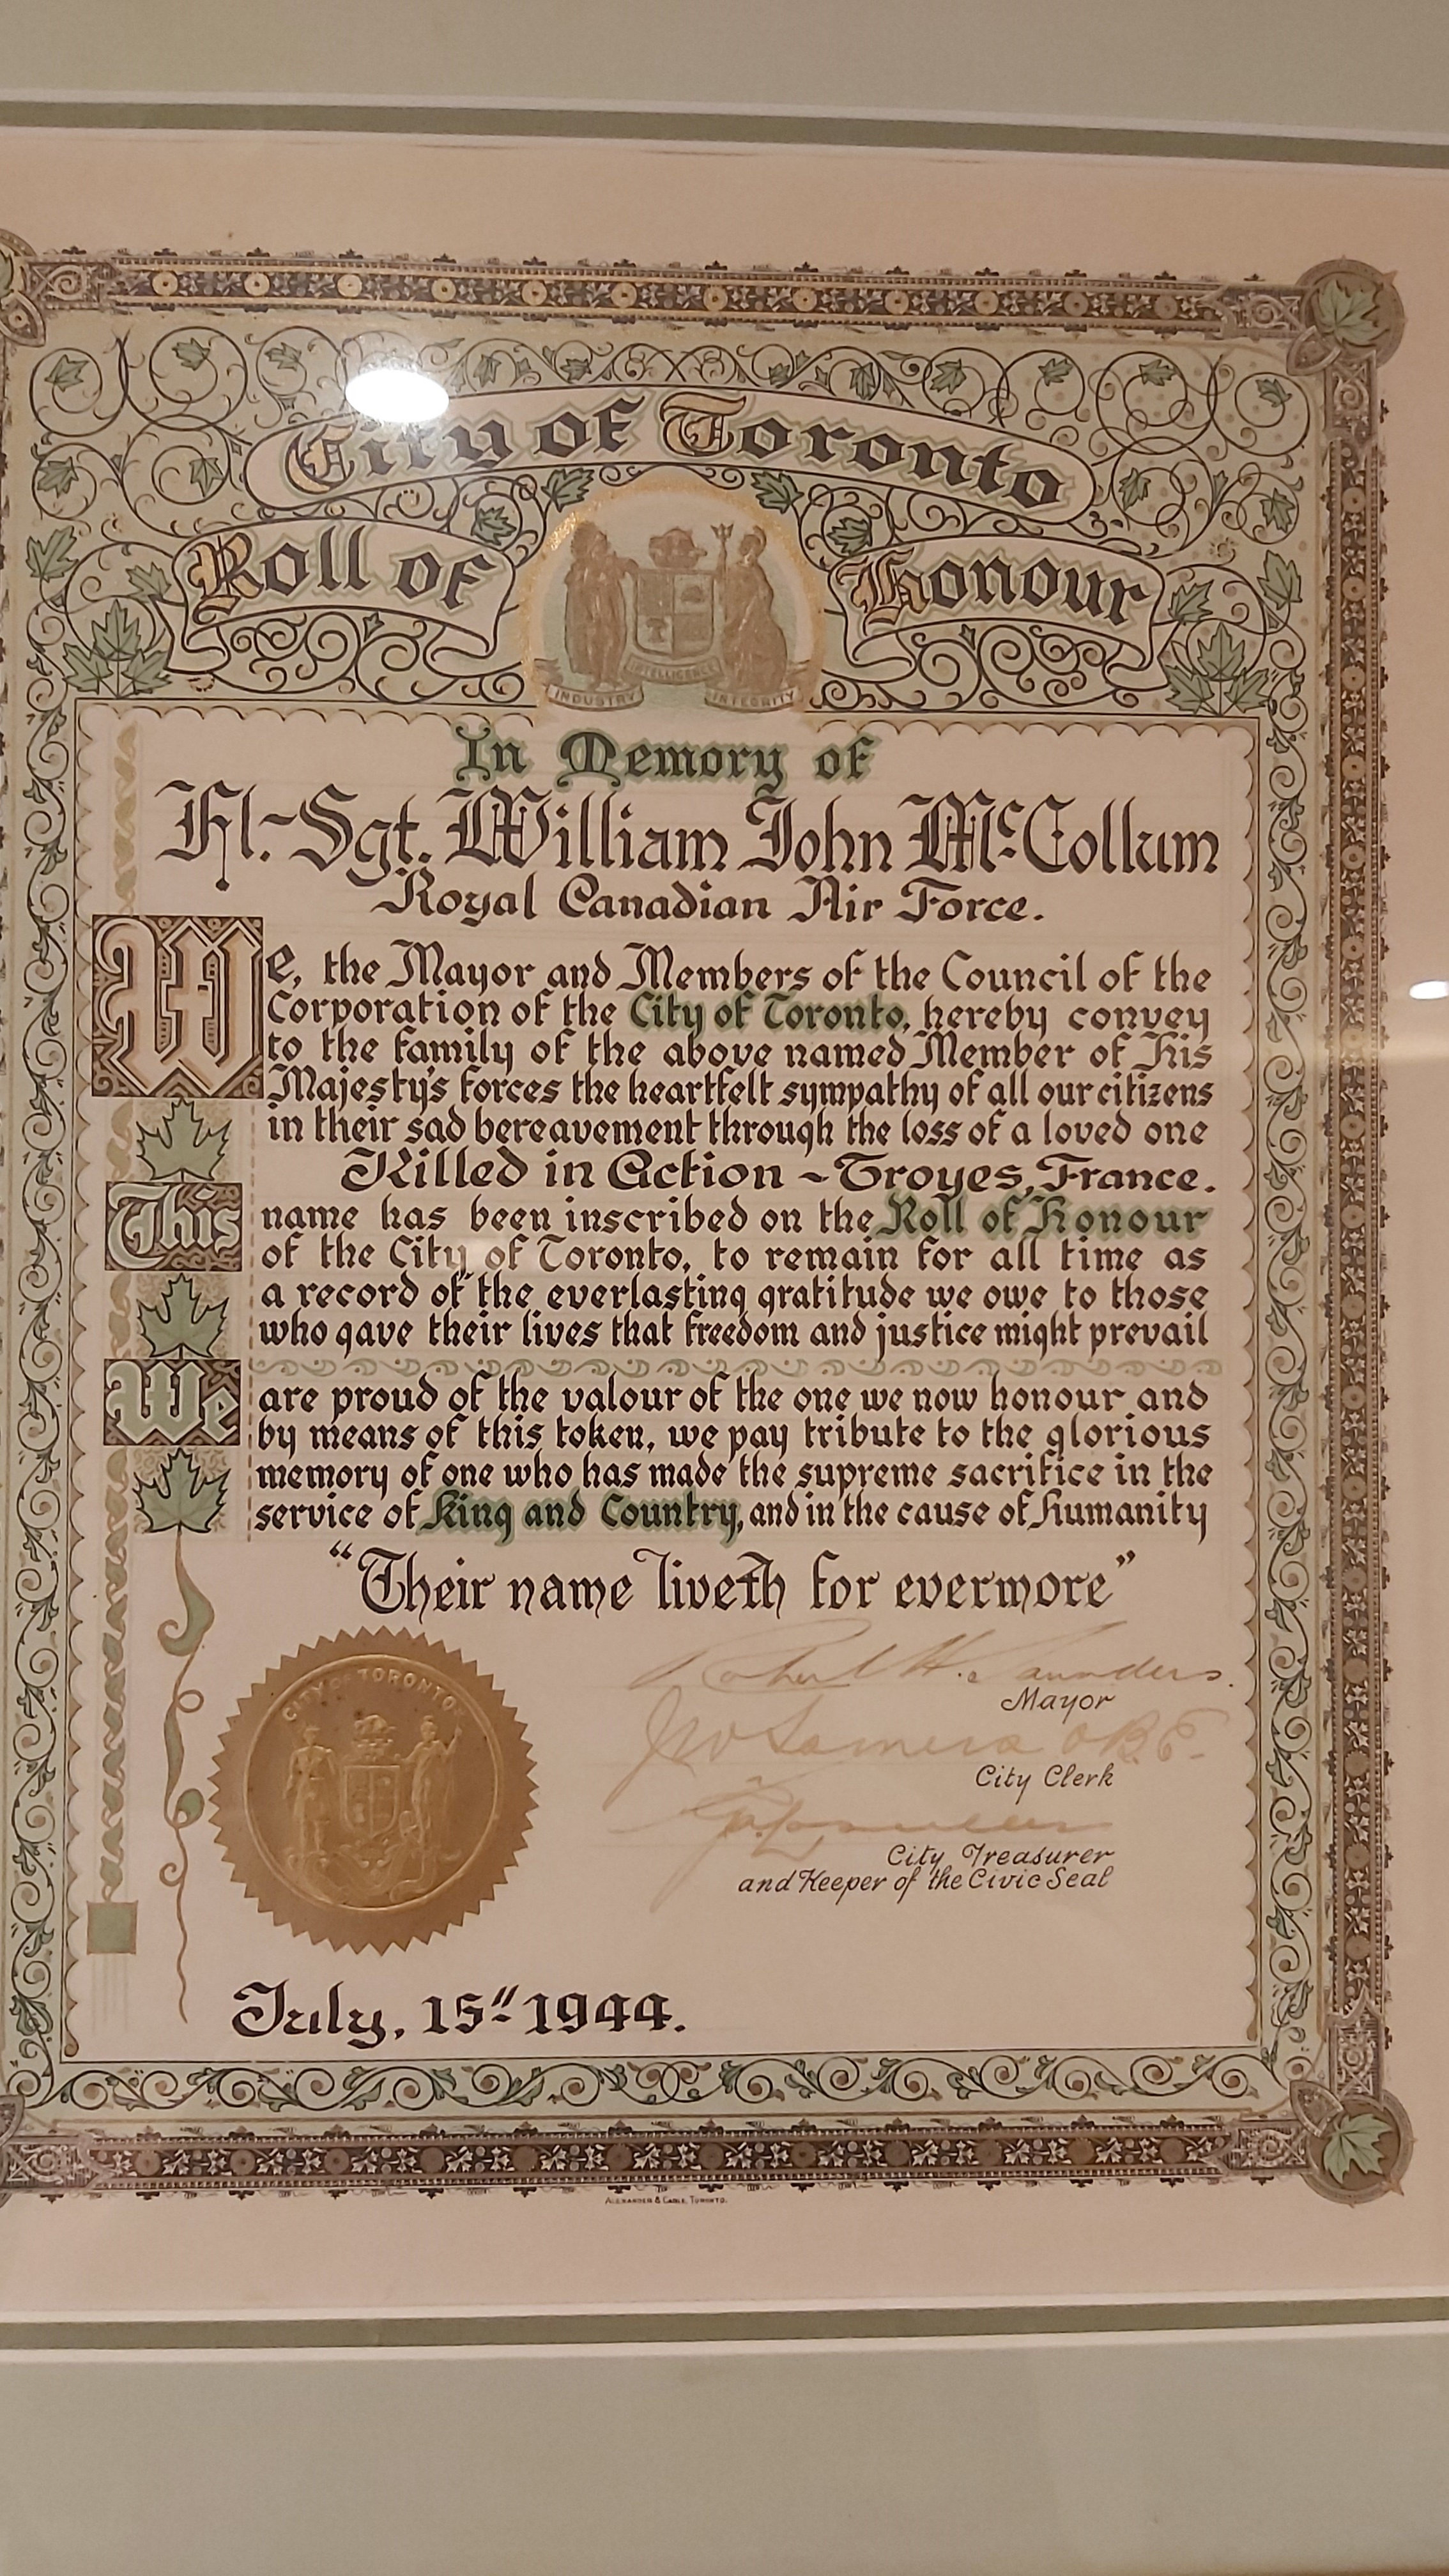 City of Toronto
Roll of Honour
INDUSTRY INTELLIGENCE INTEGRITY
In Memory of
Fl.-Sgt. William John McCollum
Royal Canadian Air Force.
We, the Mayor and Members of the Council of the
Corporation of the City of Toronto, hereby convey
to the family of the above named Member of His
Majesty's forces the heartfelt sympathy of all our citizens
in their sad bereavement through the loss of a loved one
Killed in Action - Troyes, France.
This name has been inscribed on the Roll of Honour
of the City of Toronto, to remain for all time as
a record of the everlasting gratitude we owe to those
who gave their lives that freedom and justice might prevail
We are proud of the valour of the one we now honour and
by means of this token, we pay tribute to the glorious
memory of one who has made the supreme sacrifice in the
service of King and Country, and in the cause of Humanity
"Their name liveth for evermore"
CITY OF TORONTO
Robert H. Saunders.
Mayor
O.B.E.
City Clerk
City Treasurer
and Keeper of the Civic Seal
July, 15" 1944.
ALEXANDER & CABLE, TORONTO.